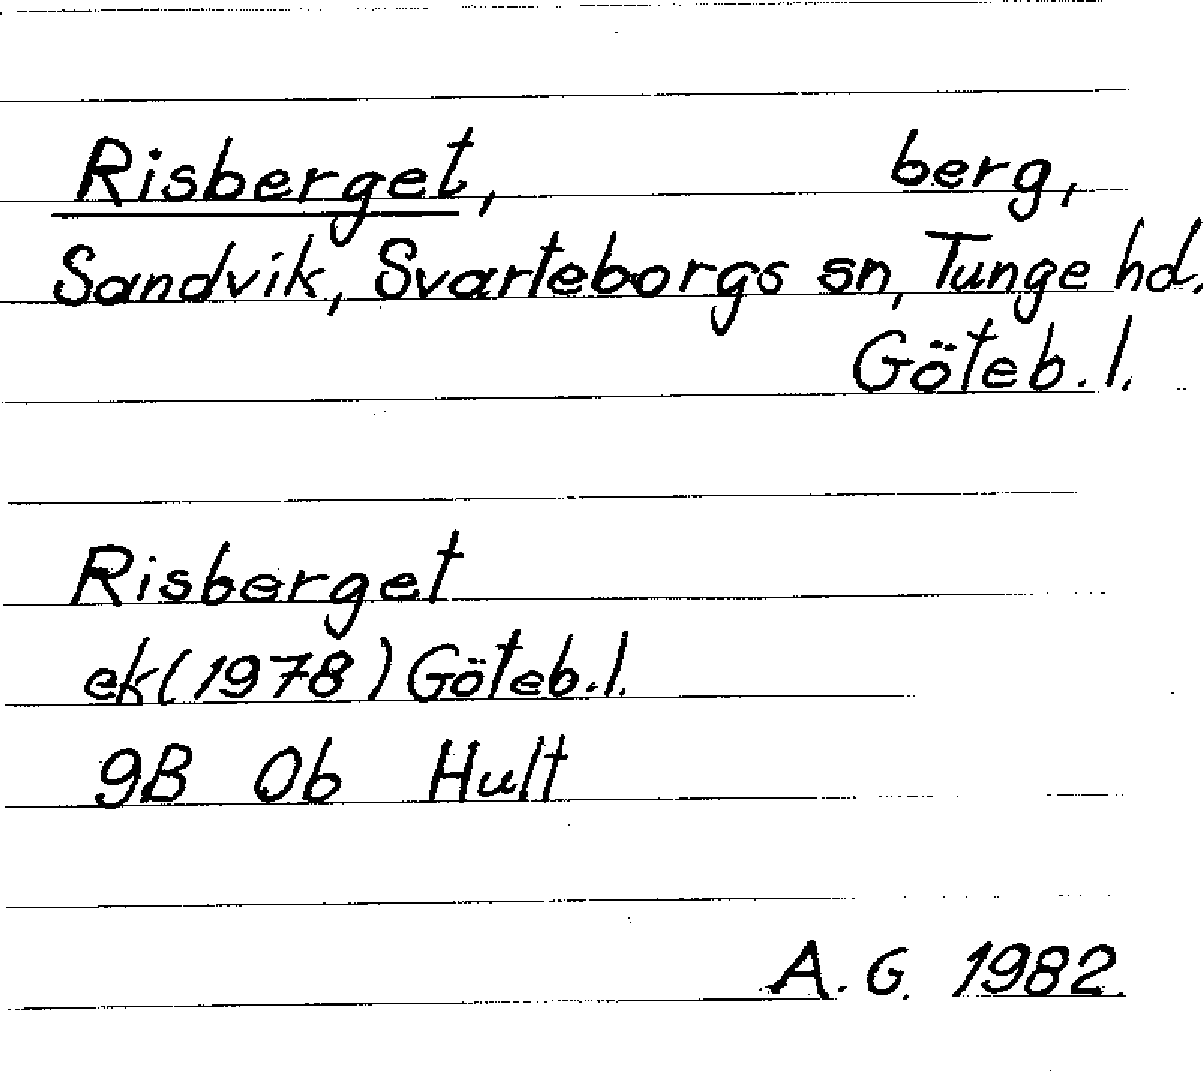 Risberget, berg,
Sandvik, Svarteborgs sn, Tunge hd.
Göteb. l.
Risberget
ek(1978) Göteb. l.
9B 0b Hult
A. G. 1982.